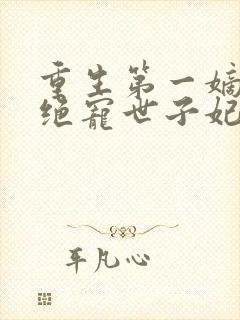 重生第一嫡
绝宠世子妃
平凡心